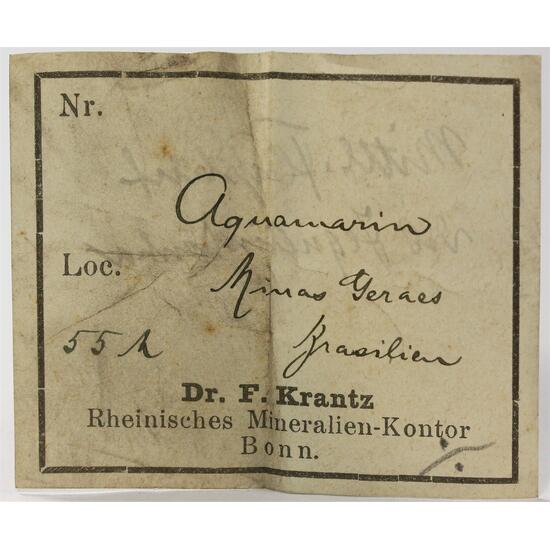 Nr.
Aquamarin
Loc.
Minas Geraes
55 h
Brasilien
Dr. F. Krantz
Rheinisches Mineralien-Kontor
Bonn.